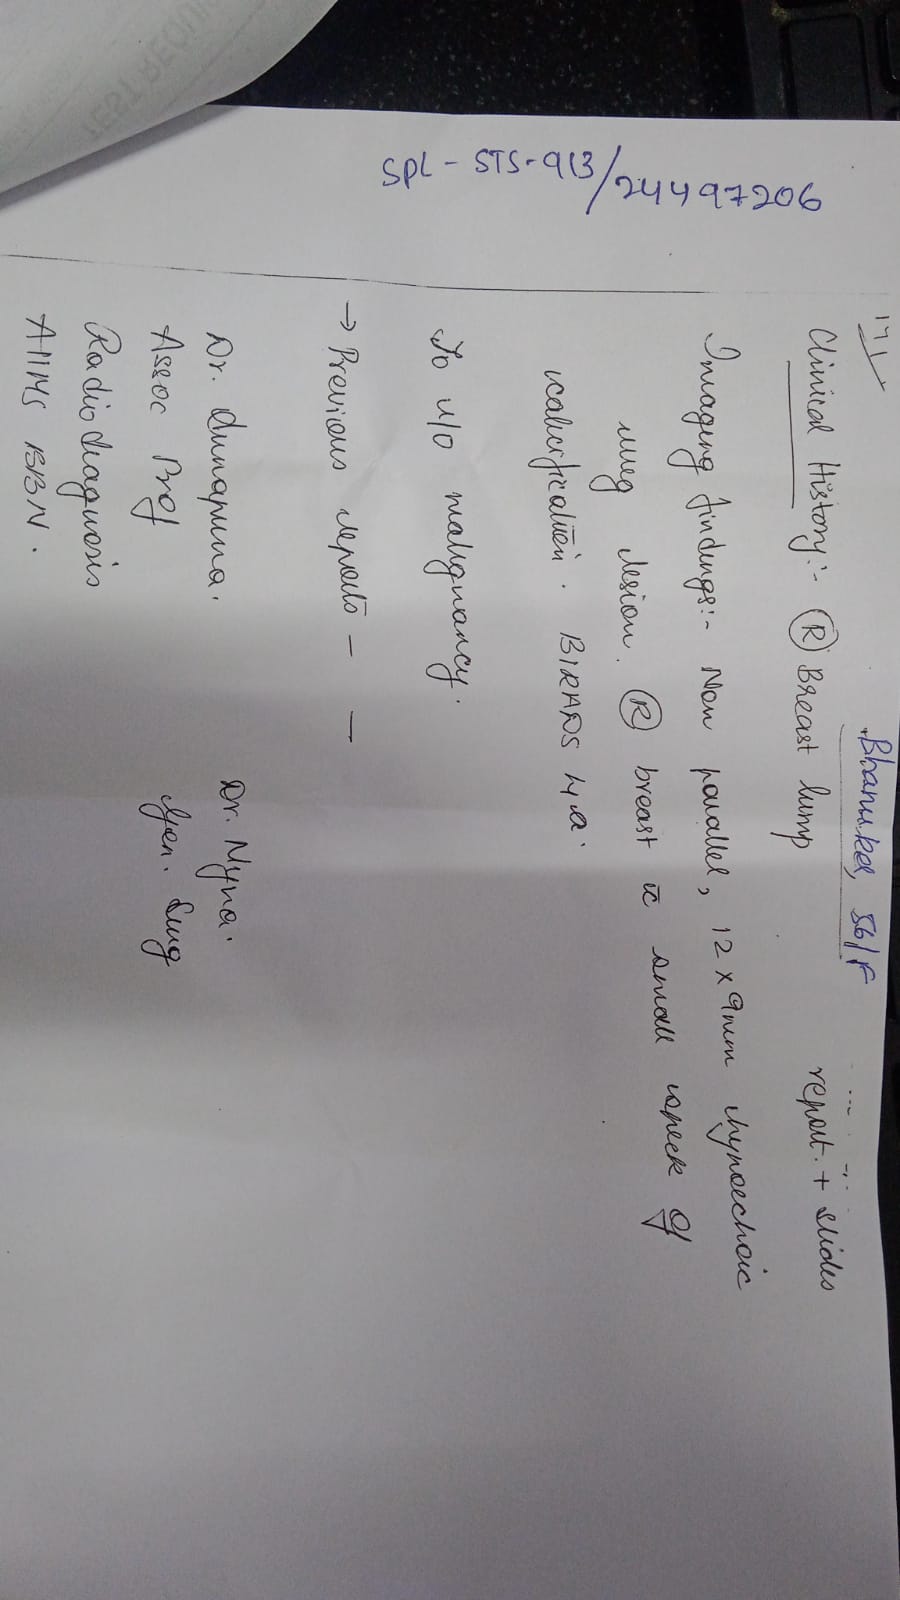 SPL - STS-913/24497206
Bhanu. 56/F
report. + slides
Clinical History:- (R) Breast lump
Imaging findings:- Non parallel, 12 x 9mm hypoechoic
irreg lesion. (R) breast c̄ small speck of
calcification. BIRADS 4a.
To r/o malignancy.
→ Previous reports - —
Dr. Dr. Myna.
Assoc Prof Gen. Surg
Radio diagnosis
AIIMS BBN.